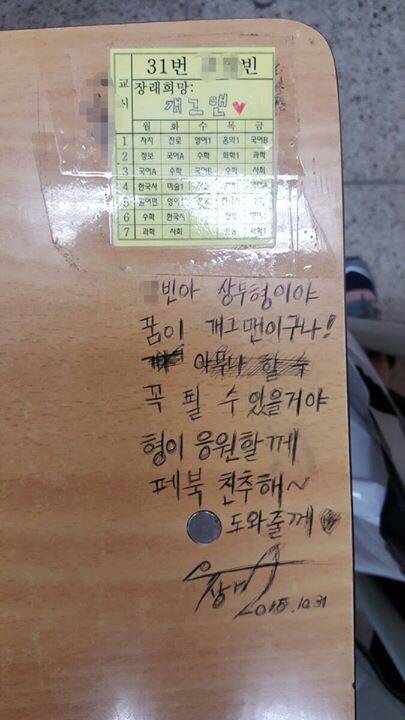 31번 빈
교시
장래희망:
개그맨♥
월 화 수 목 금
1 자치 진로 영어1 음악1 국어B
2 정보 국어A 수학 화학1 과학
3 국어A 수학 국어B 수학 사회
4 한국사 미술1
5
6 수학 한국사
7 과학 사회
빈아 상무형이야
꿈이 개그맨이구나!
아무나 할 수
꼭 될 수 있을거야
형이 응원할께
페북 친추해~
도와줄께
2015.10.31